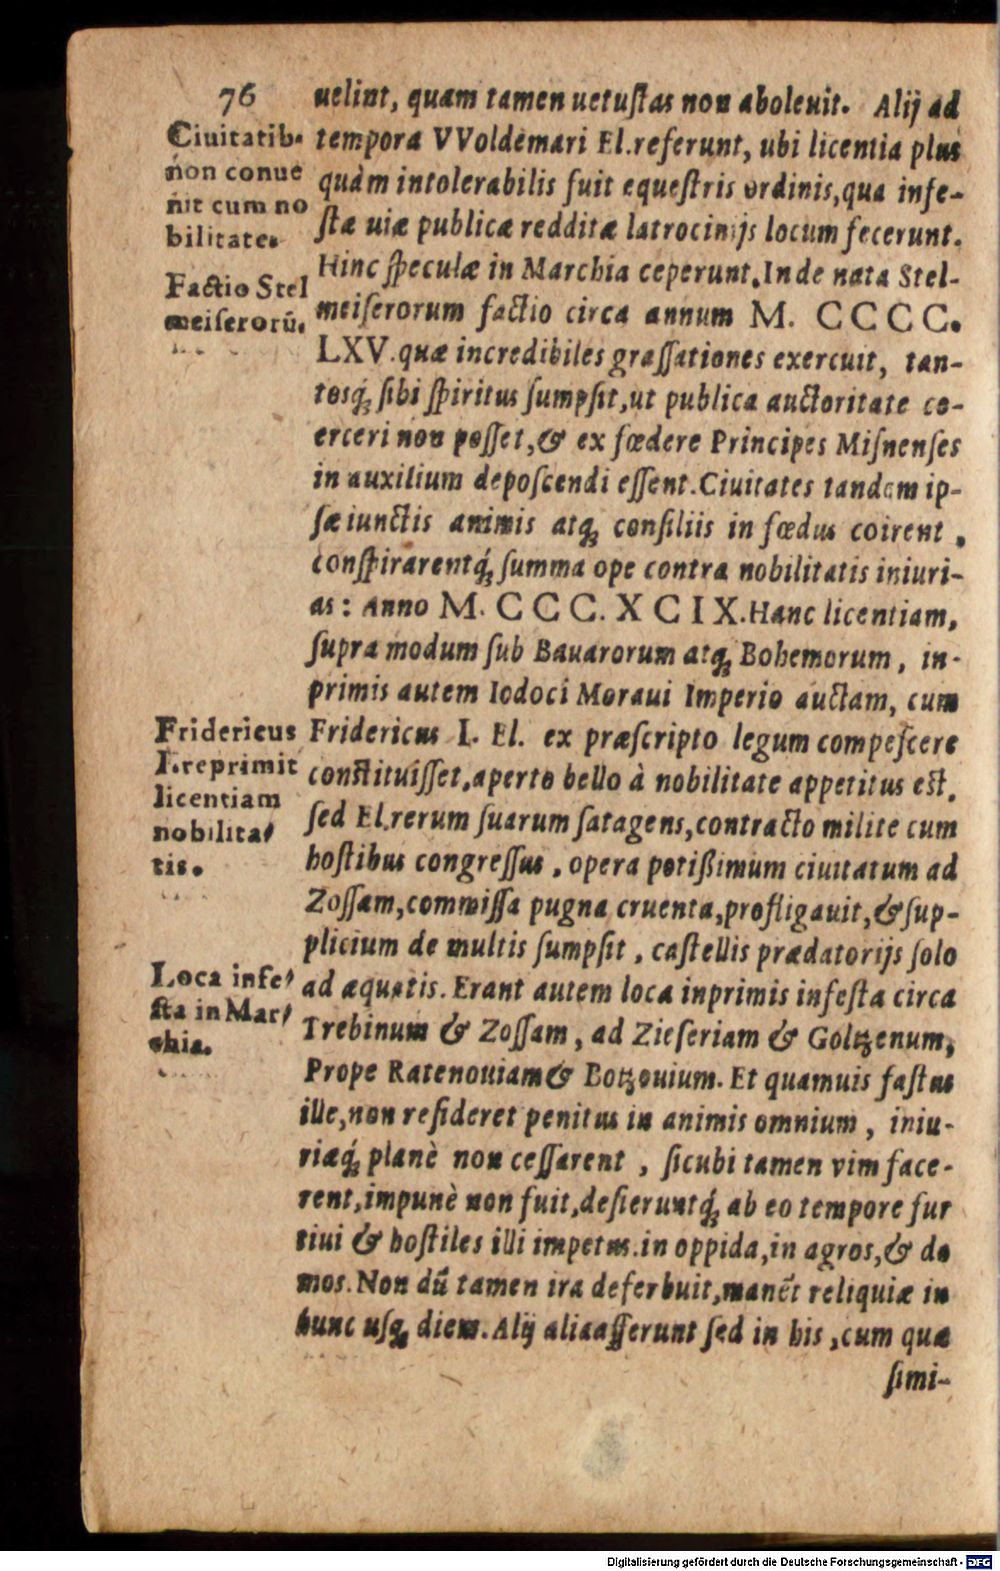 76
uelint, quam tamen uetuſtas non aboleuit. Alij ad
Ciuitatib.
non conue
nit cum no
bilitate.
tempora VVoldemari El.referunt, ubi licentia plus
quàm intolerabilis fuit equeſtris ordinis,qua infe-
ſtæ uiæ publicæ redditæ latrocinijs locum fecerunt.
Factio Stel
meiſerorũ.
Hinc ſpeculæ in Marchia ceperunt.Inde nata Stel-
meiſerorum factio circa annum M. CCCC.
LXV.quæ incredibiles graſſationes exercuit, tan-
tosq́ꝫ ſibi ſpiritus ſumpſit,ut publica auctoritate co-
erceri non poſſet,& ex fœdere Principes Miſnenſes
in auxilium depoſcendi eſſent.Ciuitates tandem ip-
ſæ iunctis animis atqꝫ conſiliis in fœdus coirent,
conſpirarentq́ꝫ ſumma ope contra nobilitatis iniuri-
as: Anno M. CCC. XCIX.Hanc licentiam,
ſupra modum ſub Bauarorum atqꝫ Bohemorum, in-
primis autem Iodoci Moraui Imperio auctam, cum
Fridericus
I.reprimit
licentiam
nobilita/
tis.
Fridericus I. El. ex præſcripto legum compeſcere
conſtituiſſet,aperto bello à nobilitate appetitus eſt.
ſed El.rerum ſuarum ſatagens,contracto milite cum
hoſtibus congreſſus, opera potißimum ciuitatum ad
Zoſſam,commiſſa pugna cruenta,profligauit,&ſup-
plicium de multis ſumpſit, caſtellis prædatorijs ſolo
Loca infe/
ſta in Mar/
chia.
ad æquatis.Erant autem loca inprimis infeſta circa
Trebinum & Zoſſam, ad Zieſeriam & Goltzenum,
Prope Ratenouiam& Botzouium. Et quamuis faſtus
ille,non reſideret penitus in animis omnium, iniu-
riæq́ꝫ planè non ceſſarent, ſicubi tamen vim face-
rent,impunè non fuit,deſieruntq́ꝫ ab eo tempore fur
tiui & hoſtiles illi impetus.in oppida,in agros,& do
mos.Non dũ tamen ira deferbuit,manẽt reliquiæ in
hunc uſqꝫ diem.Alij alia aſſerunt ſed in his,cum quæ
ſimi-
Digitalisierung gefördert durch die Deutsche Forschungsgemeinschaft - DFG